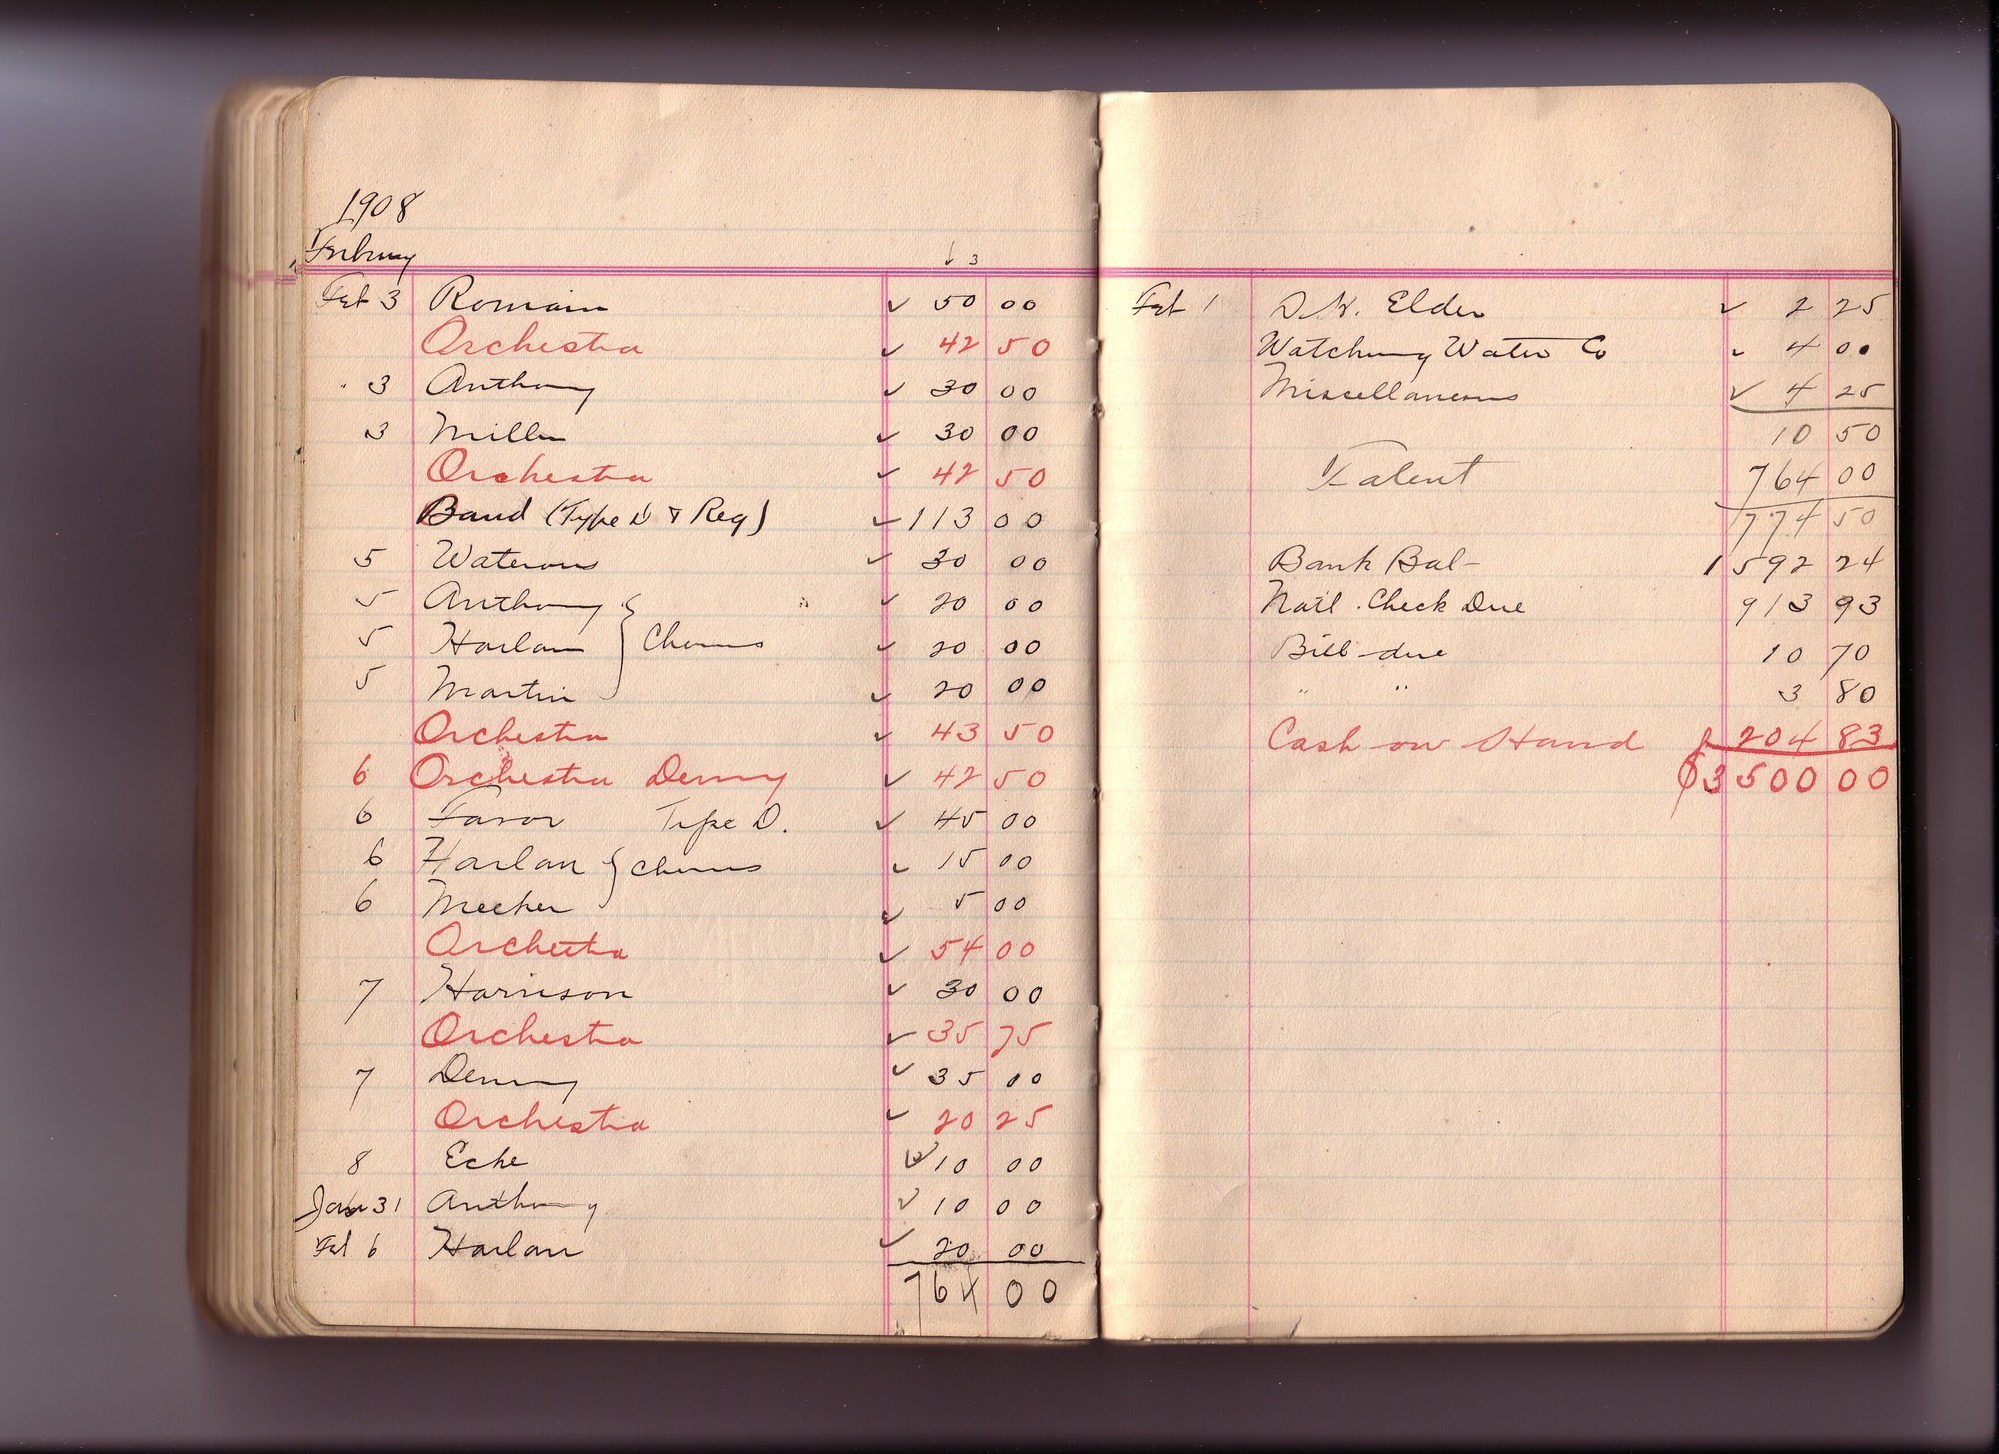 1908
February
Feb 3 Romain ✓ 50 00
Orchestra ✓ 42 50
" 3 Anthony ✓ 30 00
3 Miller ✓ 30 00
Orchestra ✓ 42 50
Band (Type D & Reg) ✓ 113 00
5 Waterous ✓ 30 00
5 Anthony ✓ 20 00
5 Harlan } Chorus ✓ 20 00
5 Martin ✓ 20 00
Orchestra ✓ 43 50
6 Orchestra Denny ✓ 42 50
6 Favor Type D. ✓ 45 00
6 Harlan } Chorus ✓ 15 00
6 Meeker ✓ 5 00
Orchestra ✓ 54 00
7 Harrison ✓ 30 00
Orchestra ✓ 35 75
7 Denny ✓ 35 00
Orchestra ✓ 20 25
8 Ecke ✓ 10 00
Jan 31 Anthony ✓ 10 00
Feb 6 Harlan ✓ 20 00
764 00
Feb 1 Elder ✓ 2 25
Watchung Water Co ✓ 4 00
Miscellaneous ✓ 4 25
10 50
Talent 764 00
774 50
Bank Bal- 1592 24
Natl. Check Due 913 93
Bill-due 10 70
" " 3 80
Cash on Hand 204 83
$3500 00